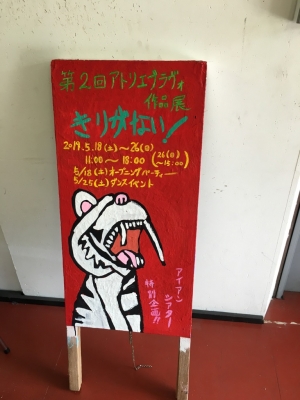 第2回アトリエブラヴォ
作品展
きりがない!
2019.5.18(土)〜26(日)
11:00〜18:00(26(日)〜15:00)
5/18(土)オープニングパーティー
5/25(土)ダンスイベント
アイアンシアター
特別企画!!